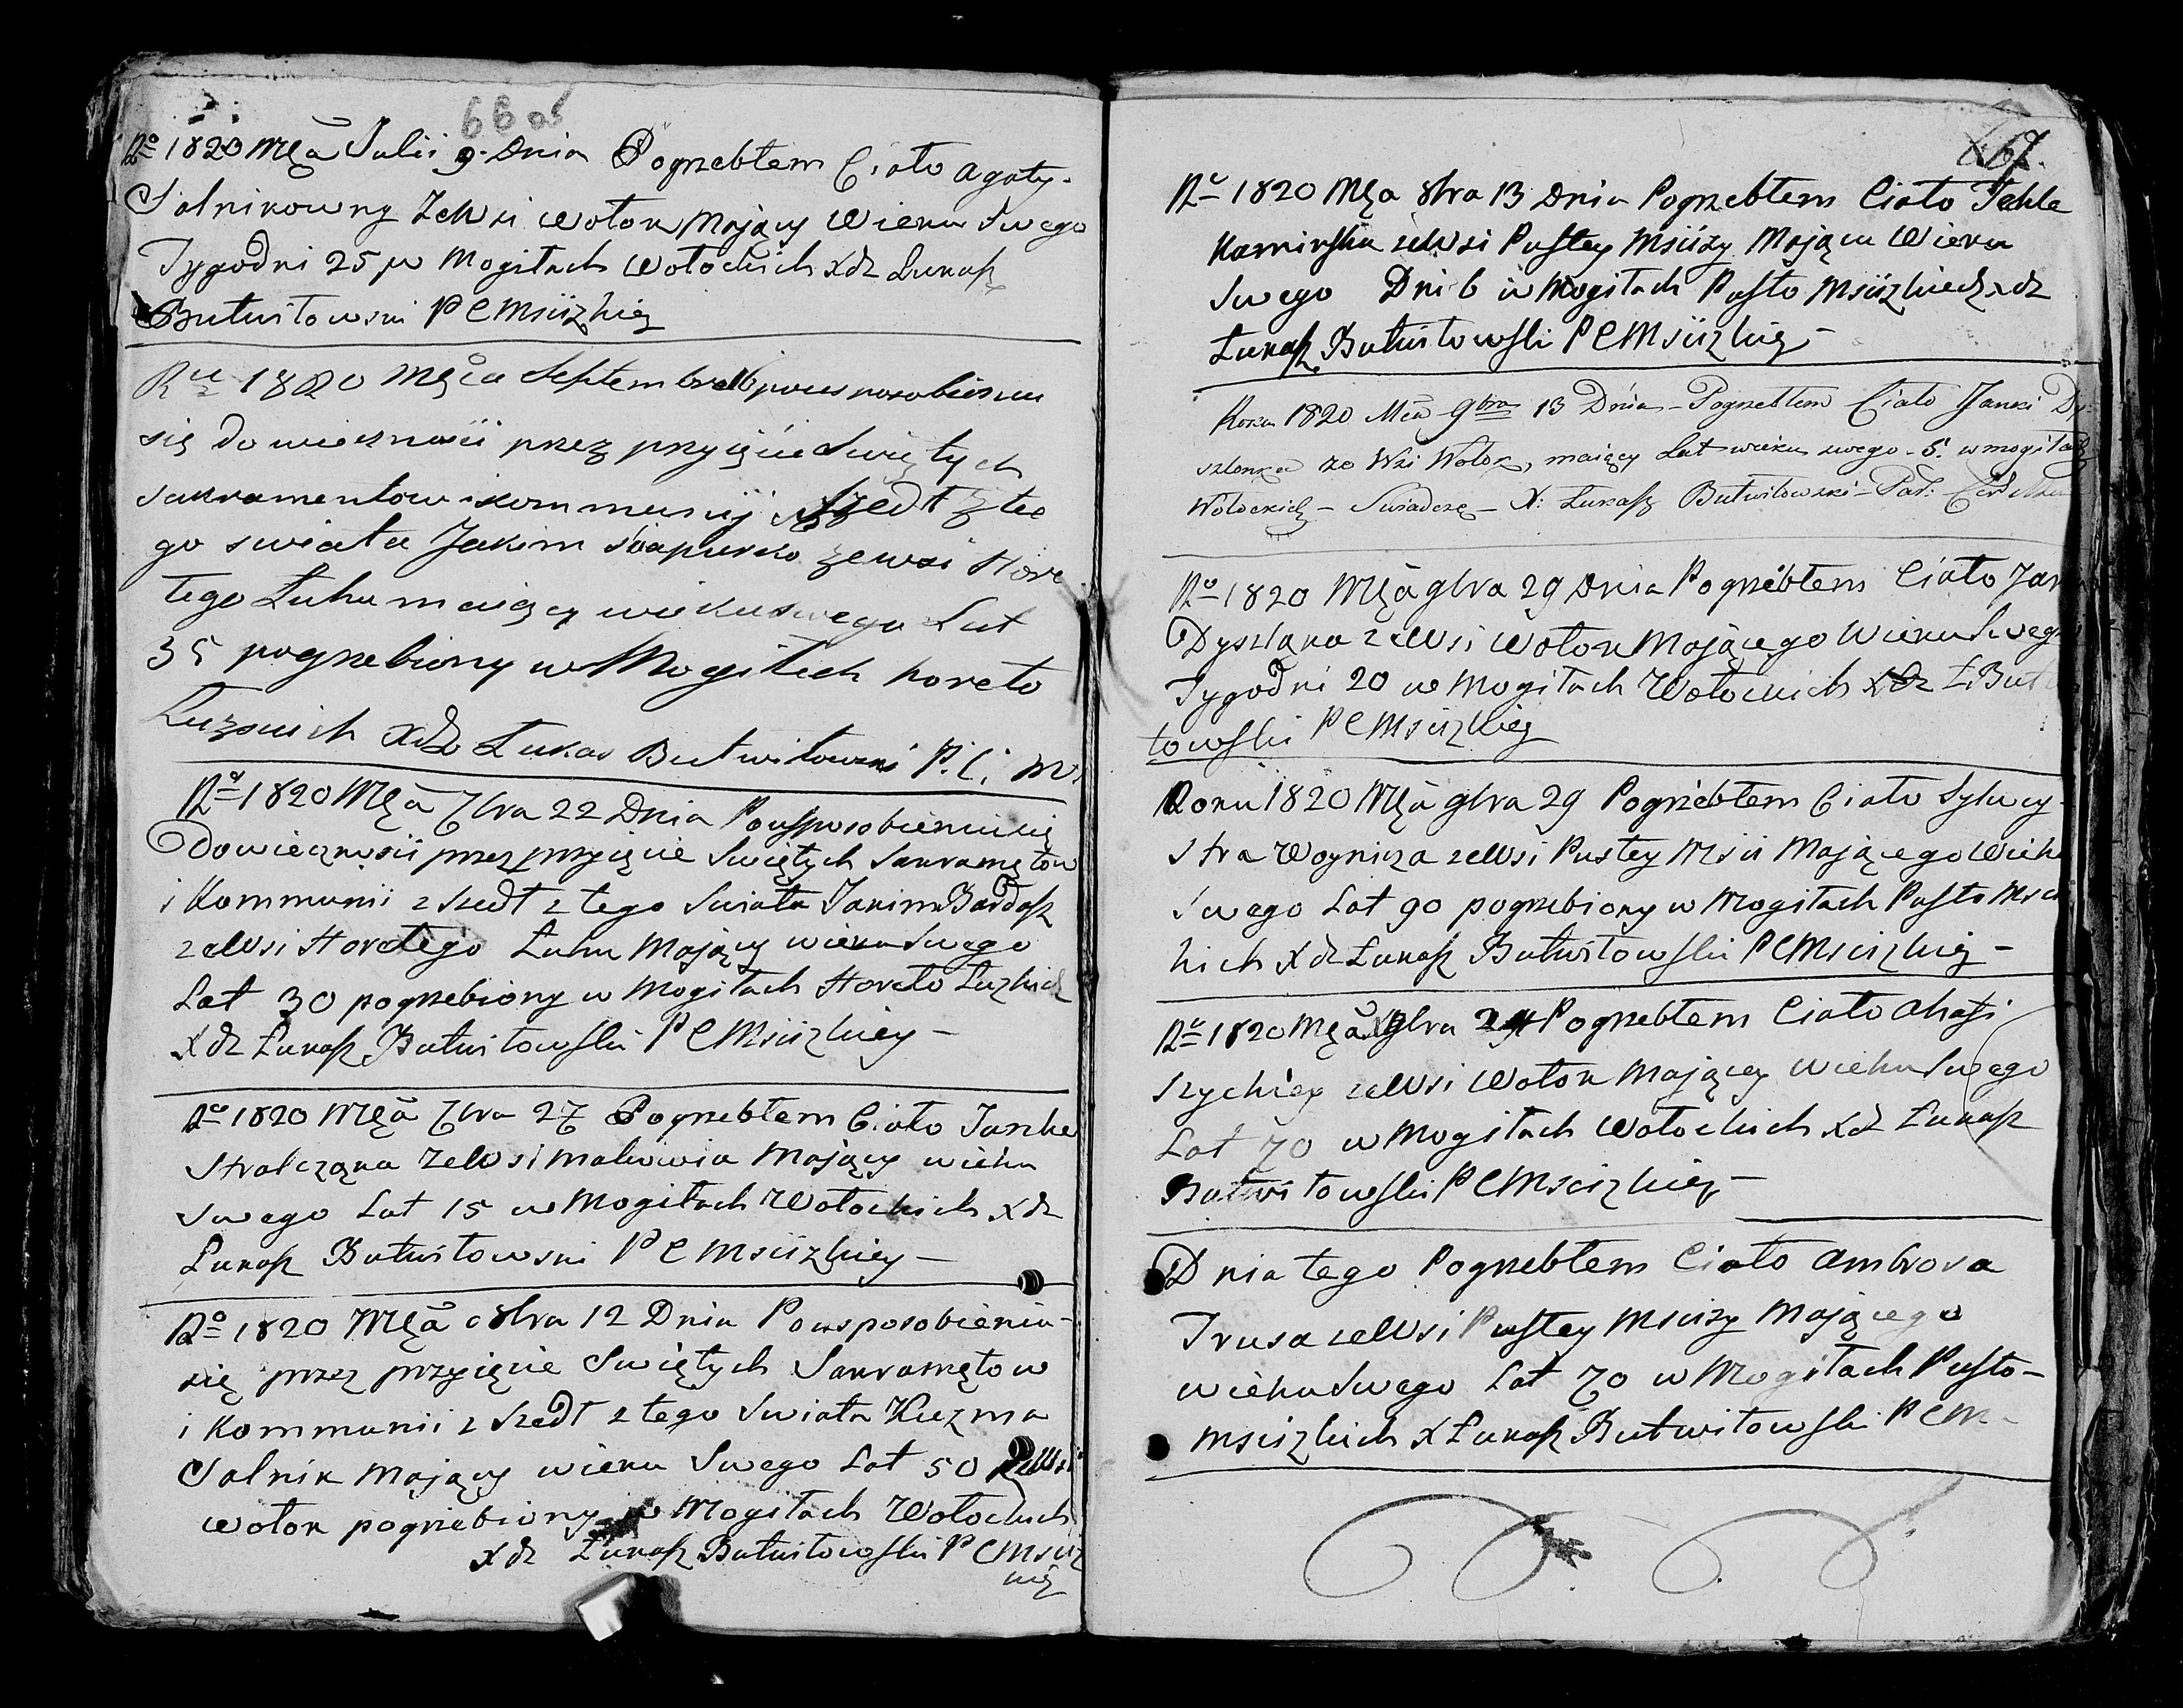 66 об
Ro 1820 Męa Julii 9 Dnia Pogrzebłem Ciało Agaty
Solnikowny ZeWsi Wołok Mający Wieku Swego
Tygodni 25 w Mogiłach Wołockich Xdz Łukasz
Butwiłowski P C Msciizkiey
Ru 1820 Męca Septembra 16 pouspasobieniu
się do wiecznosci przez przyięcie Swiętych
Sakramentow i kommunij Szedł z te
go swiata Jakim Szapurko ze wsi Hore
tego Łuhu maiący wieku swego Lat
35 pogrzebiony w Mogiłach horeto
Łuzskich Xdz Łukas Butwiłowski P. C. M
Ru 1820 Męa 7bra 22 Dnia Pousposobieniu się
Dowiecznosci przez przyięcie Swiętych Sakramętow
i Kommunii z Szedł z tego Swiata Jakim Bardasz
zeWsi Horetego Łuhu Mający wieku Swego
Lat 30 pogrzebiony w Mogiłach Horeto Łuzkich
Xdz Łukasz Butwiłowski P C Msciizkiey —
Ro 1820 Męa 7bra 27 Pogrzebłem Ciało Janka
Stralcząka ZeWsi Malwowia Mający wieku
Swego Lat 15 w Mogiłach Wołockich Xdz
Łukasz Butwiłowski P C Msciizkiey —
Ro 1820 Męa 8bra 12 Dnia Pousposobieniu-
się przez przyięcie Swiętych Sakramętow
i Kommunii z Szedł z tego Swiata Kuzma
Solnik Mający wieku Swego Lat 50 zeWsi
Wołok pogrzebiony w Mogiłach Wołockich
Xdz Łukasz Butwiłowski P C Msciiz
kiey
67.
Ru 1820 Męa 8bra 13 Dnia Pogrzebłem Ciało Tekle
Kaminska zeWsi Pustey Msciizy Mająca Wieku
Swego Dni 6 w Mogiłach Pusto Msciizkich Xdz
Łukasz Butwiłowski P C Msciizkiey —
Roku 1820 Mca 9bra 13 Dnia - Pogrzebłem Ciało Janki Dy-
szlonka zo Wsi Wołok, maiący Lat wieku swego - 5. w mogiłach
Wołockich - Swiadczę - X: Łukasz Butwiłowski - Par:
Ro 1820 Męa 9bra 29 Dnia Pogrzebłem Ciało Jan
Dyszląka zeWsi Wołok Mającego Wieku Swego
Tygodni 20 w Mogiłach Wołockich Xdz Ł. Butwi
łowski P C Msciizkiey
Roku 1820 Męa 9bra 29 Pogrzebłem Ciało Sylwe-
stra Woynicza zeWsi Pustey Mscii Mającego Wieku
Swego Lat 90 pogrzebiony w Mogiłach Pusto Mscii
kich Xdz Łukasz Butwiłowski P C Msciizkiey —
Ru 1820 Męa Xbra Pogrzebłem Ciało Ahasi
Szyckiey zeWsi Wołok Mającey Wieku Swego
Lat 70 w Mogiłach Wołockich Xdz Łukasz
Butwiłowski P C Msciizkiey —
Dnia tego Pogrzebłem Ciało Ambrosa
Trusa zeWsi Pustey Msciizy Mającego
wieku Swego Lat 70 w Mogiłach Pusto-
Msciizkich X Łukasz Butwiłowski P C M